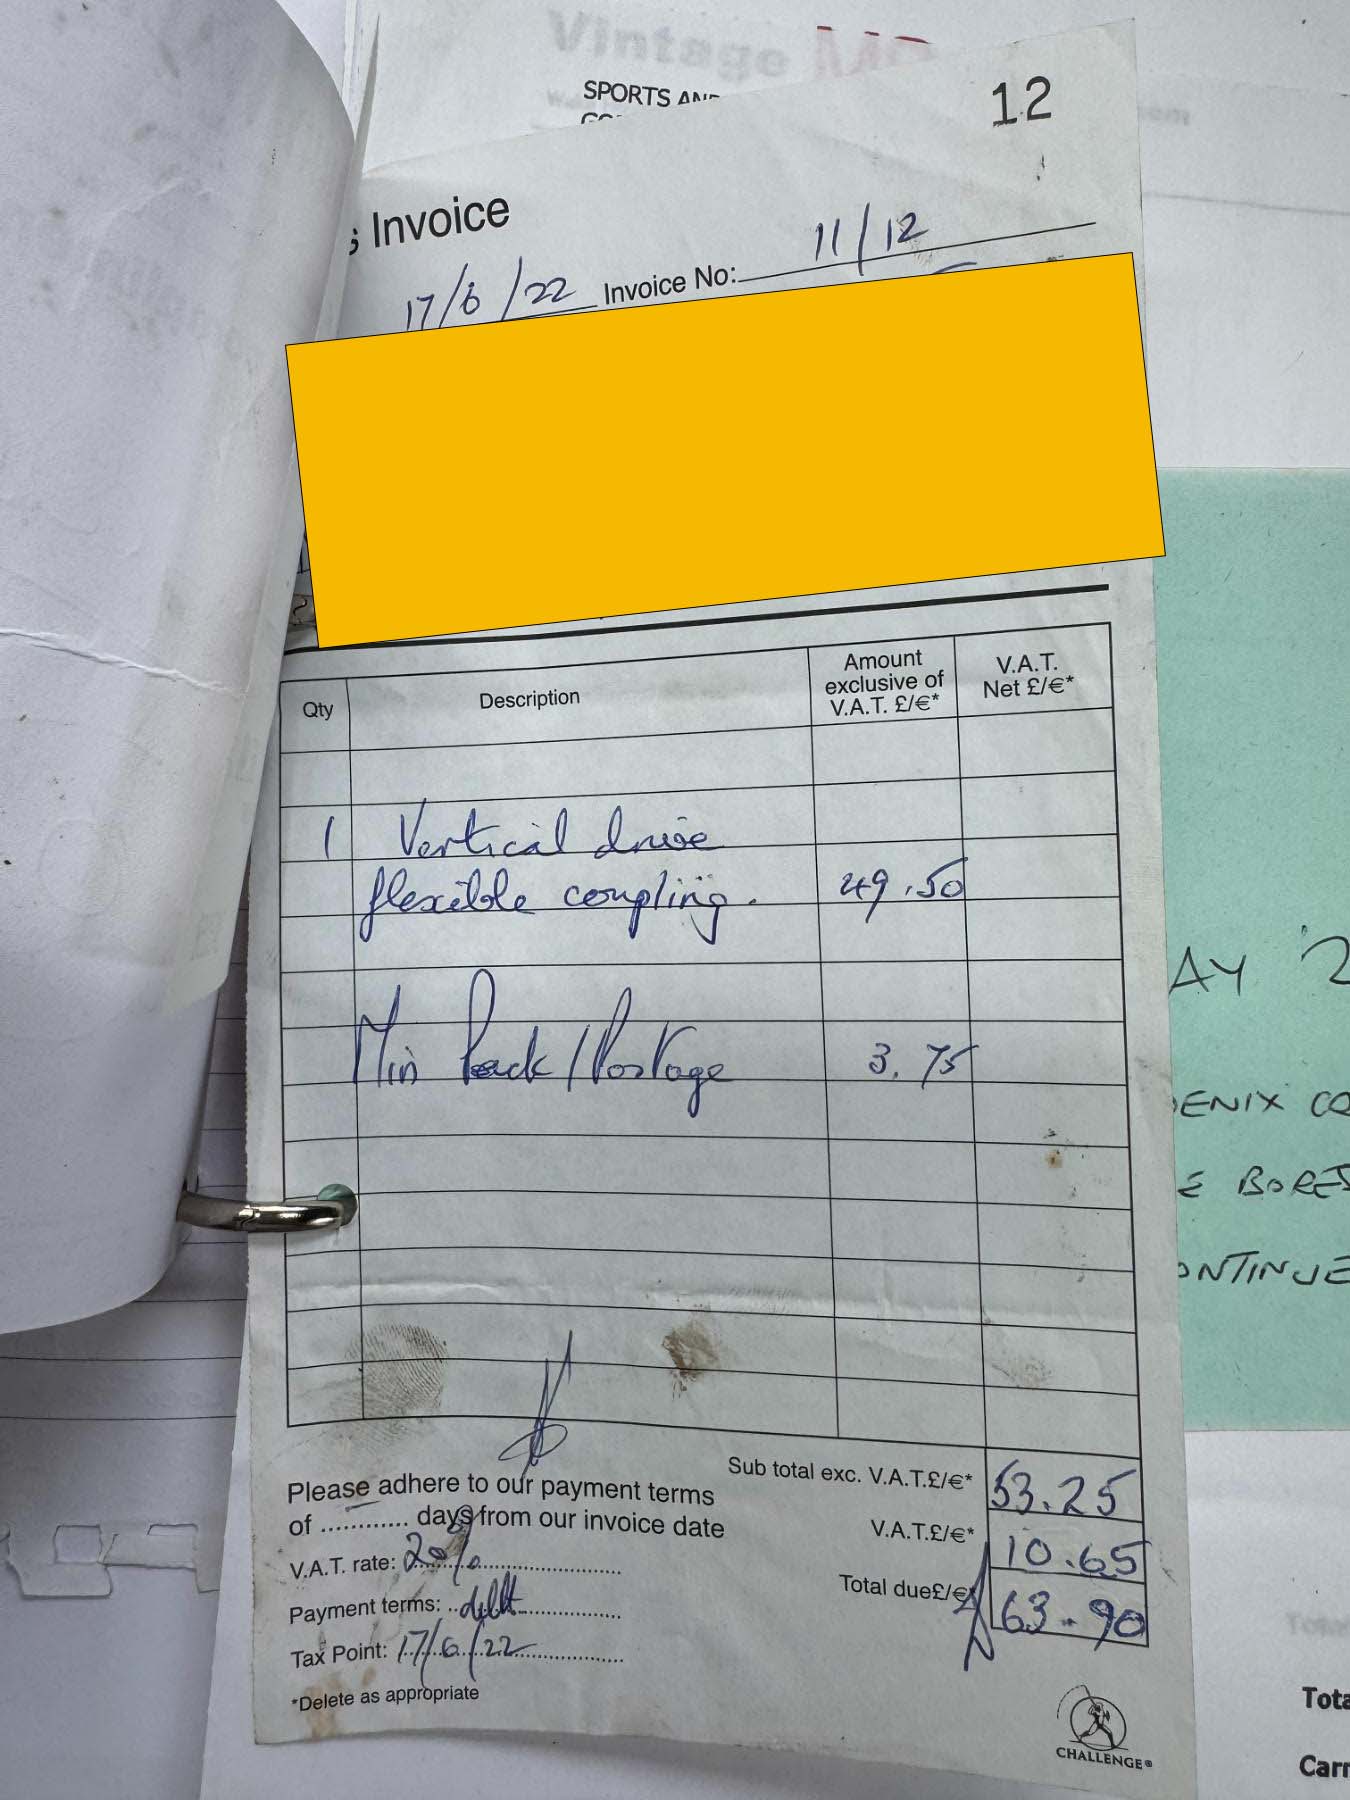 Vintage
SPORTS AND
12
Invoice
17/6/22 Invoice No: 11/12
Qty Description Amount exclusive of V.A.T. £/€* V.A.T. Net £/€*
1 Vertical drive
flexible coupling. 49.50
Min Pack/Postage 3.75
Please adhere to our payment terms
of ............ days from our invoice date
V.A.T. rate: 20%
Payment terms: debt
Tax Point: 17/6/22
*Delete as appropriate
Sub total exc. V.A.T.£/€* 53.25
V.A.T.£/€* 10.65
Total due£/€* 63.90
CHALLENGE®
AY '2
ENIX CO
E BORES
ONTINUE
Tota
Carr